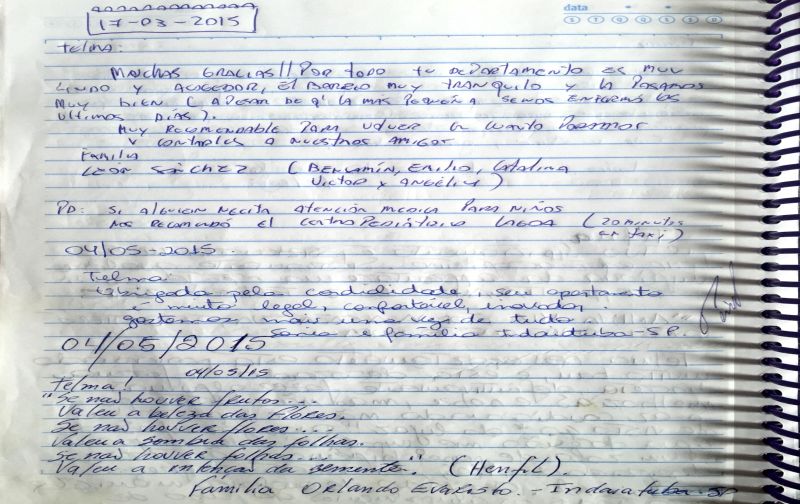 17-03-2015
data
S T Q Q S S D
Telma:
Muchas gracias!! Por todo tu departamento es muy
lindo y acogedor, el barrio muy tranquilo y la pasamos
muy bien (apesar de q' la más pequeña se nos enfermó los
ultimos días).
Muy recomendable para volver en cuanto podamos
y contarles a nuestros amigos
Familia
León Sánchez (Benjamín, Emilio, Catalina
Victor y Angélica)
PD: Si alguien necita atención medica para niños
nos recomendó el centro Pediátrico Lagoa (20 minutos
en taxi)
04/05-2015
Telma:
Obrigada pela cordialidade, seu apartamento
é muito legal, confortável, inovador.
gostamos mais uma vez de tudo.
Sonia e família Indaiatuba-SP.
04/05/2015
04/05/15
Telma!
"Se não houver frutos...
Valeu a beleza das flores.
Se não houver flores...
Valeu a sombra das folhas.
Se não houver folhas...
Valeu a intenção da semente". (Henfil).
Família Orlando Evaristo.- Indaiatuba-SP